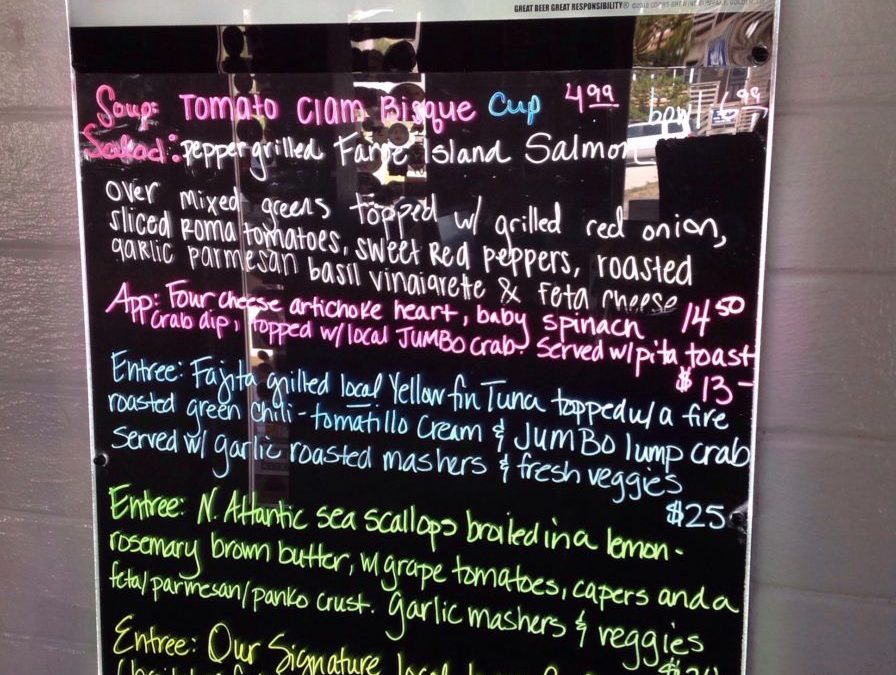 GREAT BEER GREAT RESPONSIBILITY®
Soup: Tomato Clam Bisque Cup 4.99 bowl 6.99
Salad: pepper grilled Faroe Island Salmon
over mixed greens topped w/ grilled red onion,
sliced Roma tomatoes, sweet Red peppers, roasted
garlic parmesan basil vinaigrette & feta cheese
14.50
App: Four cheese artichoke heart, baby spinach
crab dip, topped w/ local JUMBO crab. Served w/ pita toast
$13-
Entree: Fajita grilled local Yellow fin Tuna topped w/ a fire
roasted green chili-tomatillo cream & JUMBO lump crab
served w/ garlic roasted mashers & fresh veggies
$25
Entree: N. Atlantic sea scallops broiled in a lemon-
rosemary brown butter, w/ grape tomatoes, capers and a
feta/parmesan/panko crust. garlic mashers & veggies
Entree: Our Signature local